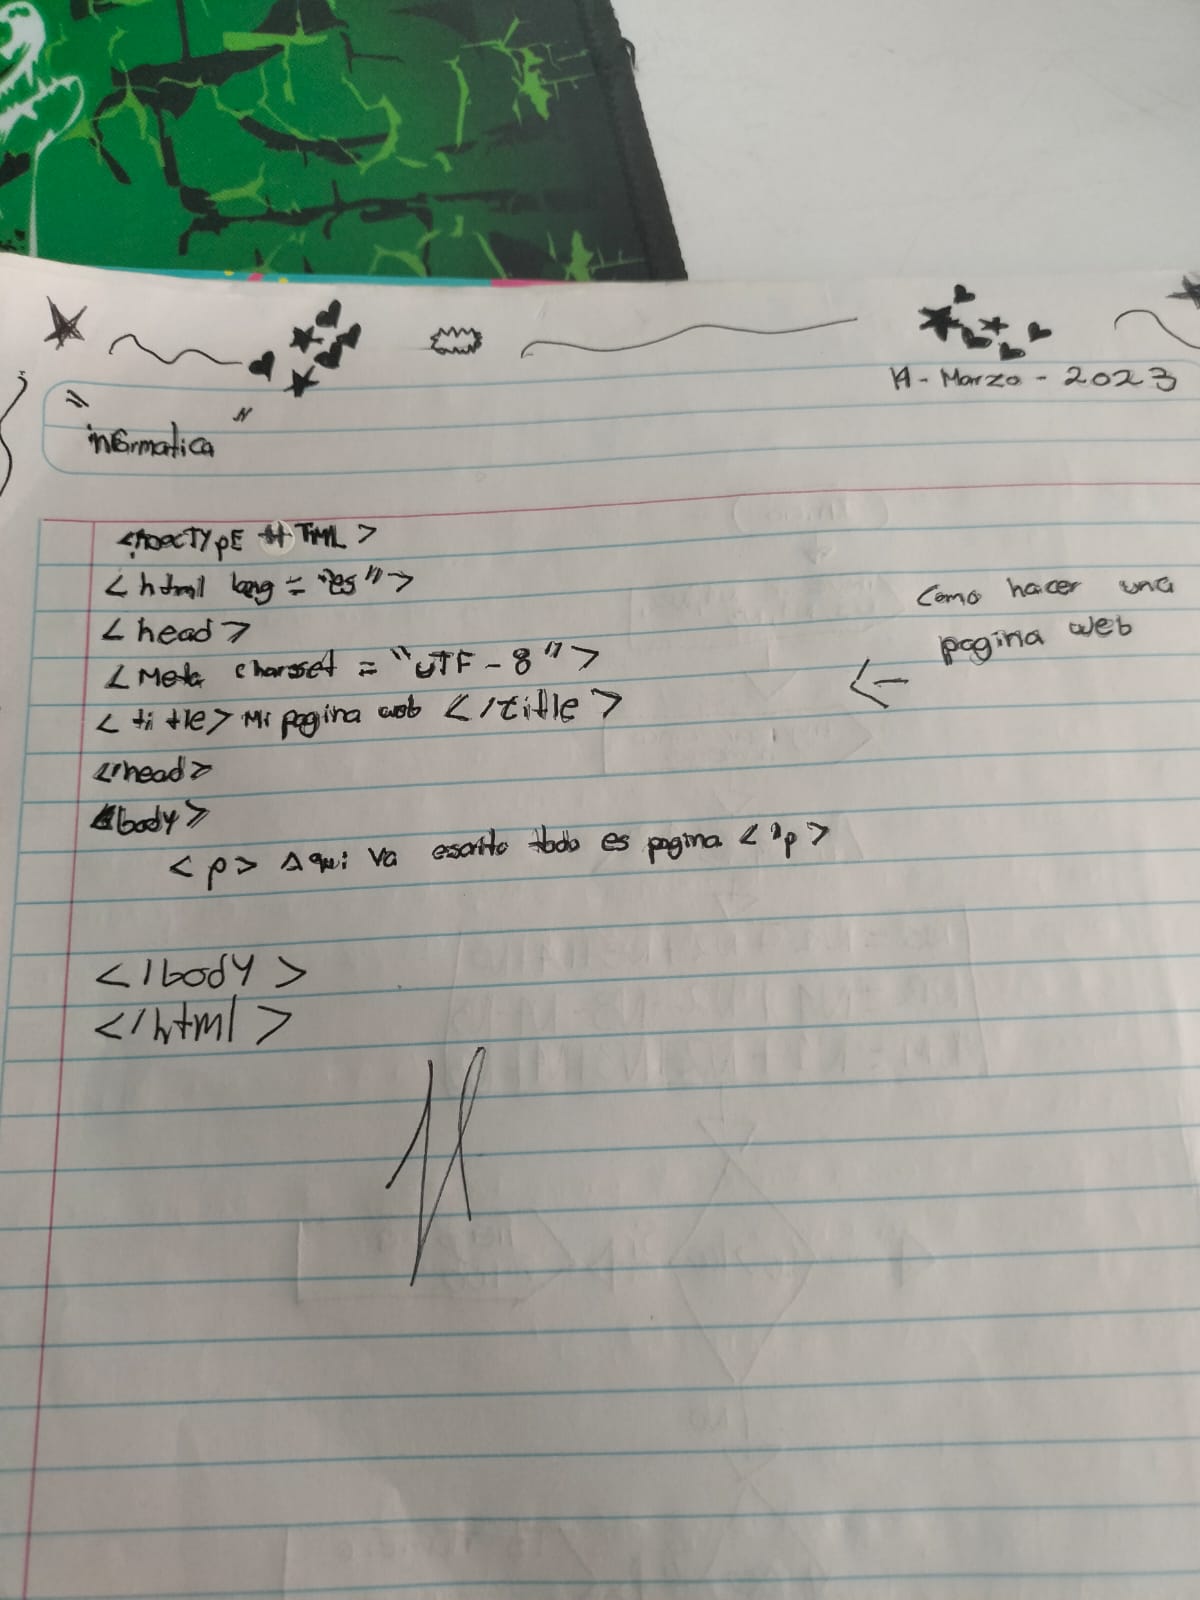 14 - Marzo - 2023
" informatica "
<!DocTYpE HTML>
<html lang = "es">
<head>
<Meta charset = "UTF - 8">
<title> Mi pagina web </title>
</head>
<body>
<p> Aqui va escrito todo es pagina </p>
</body>
</html>
Como hacer una
pagina web